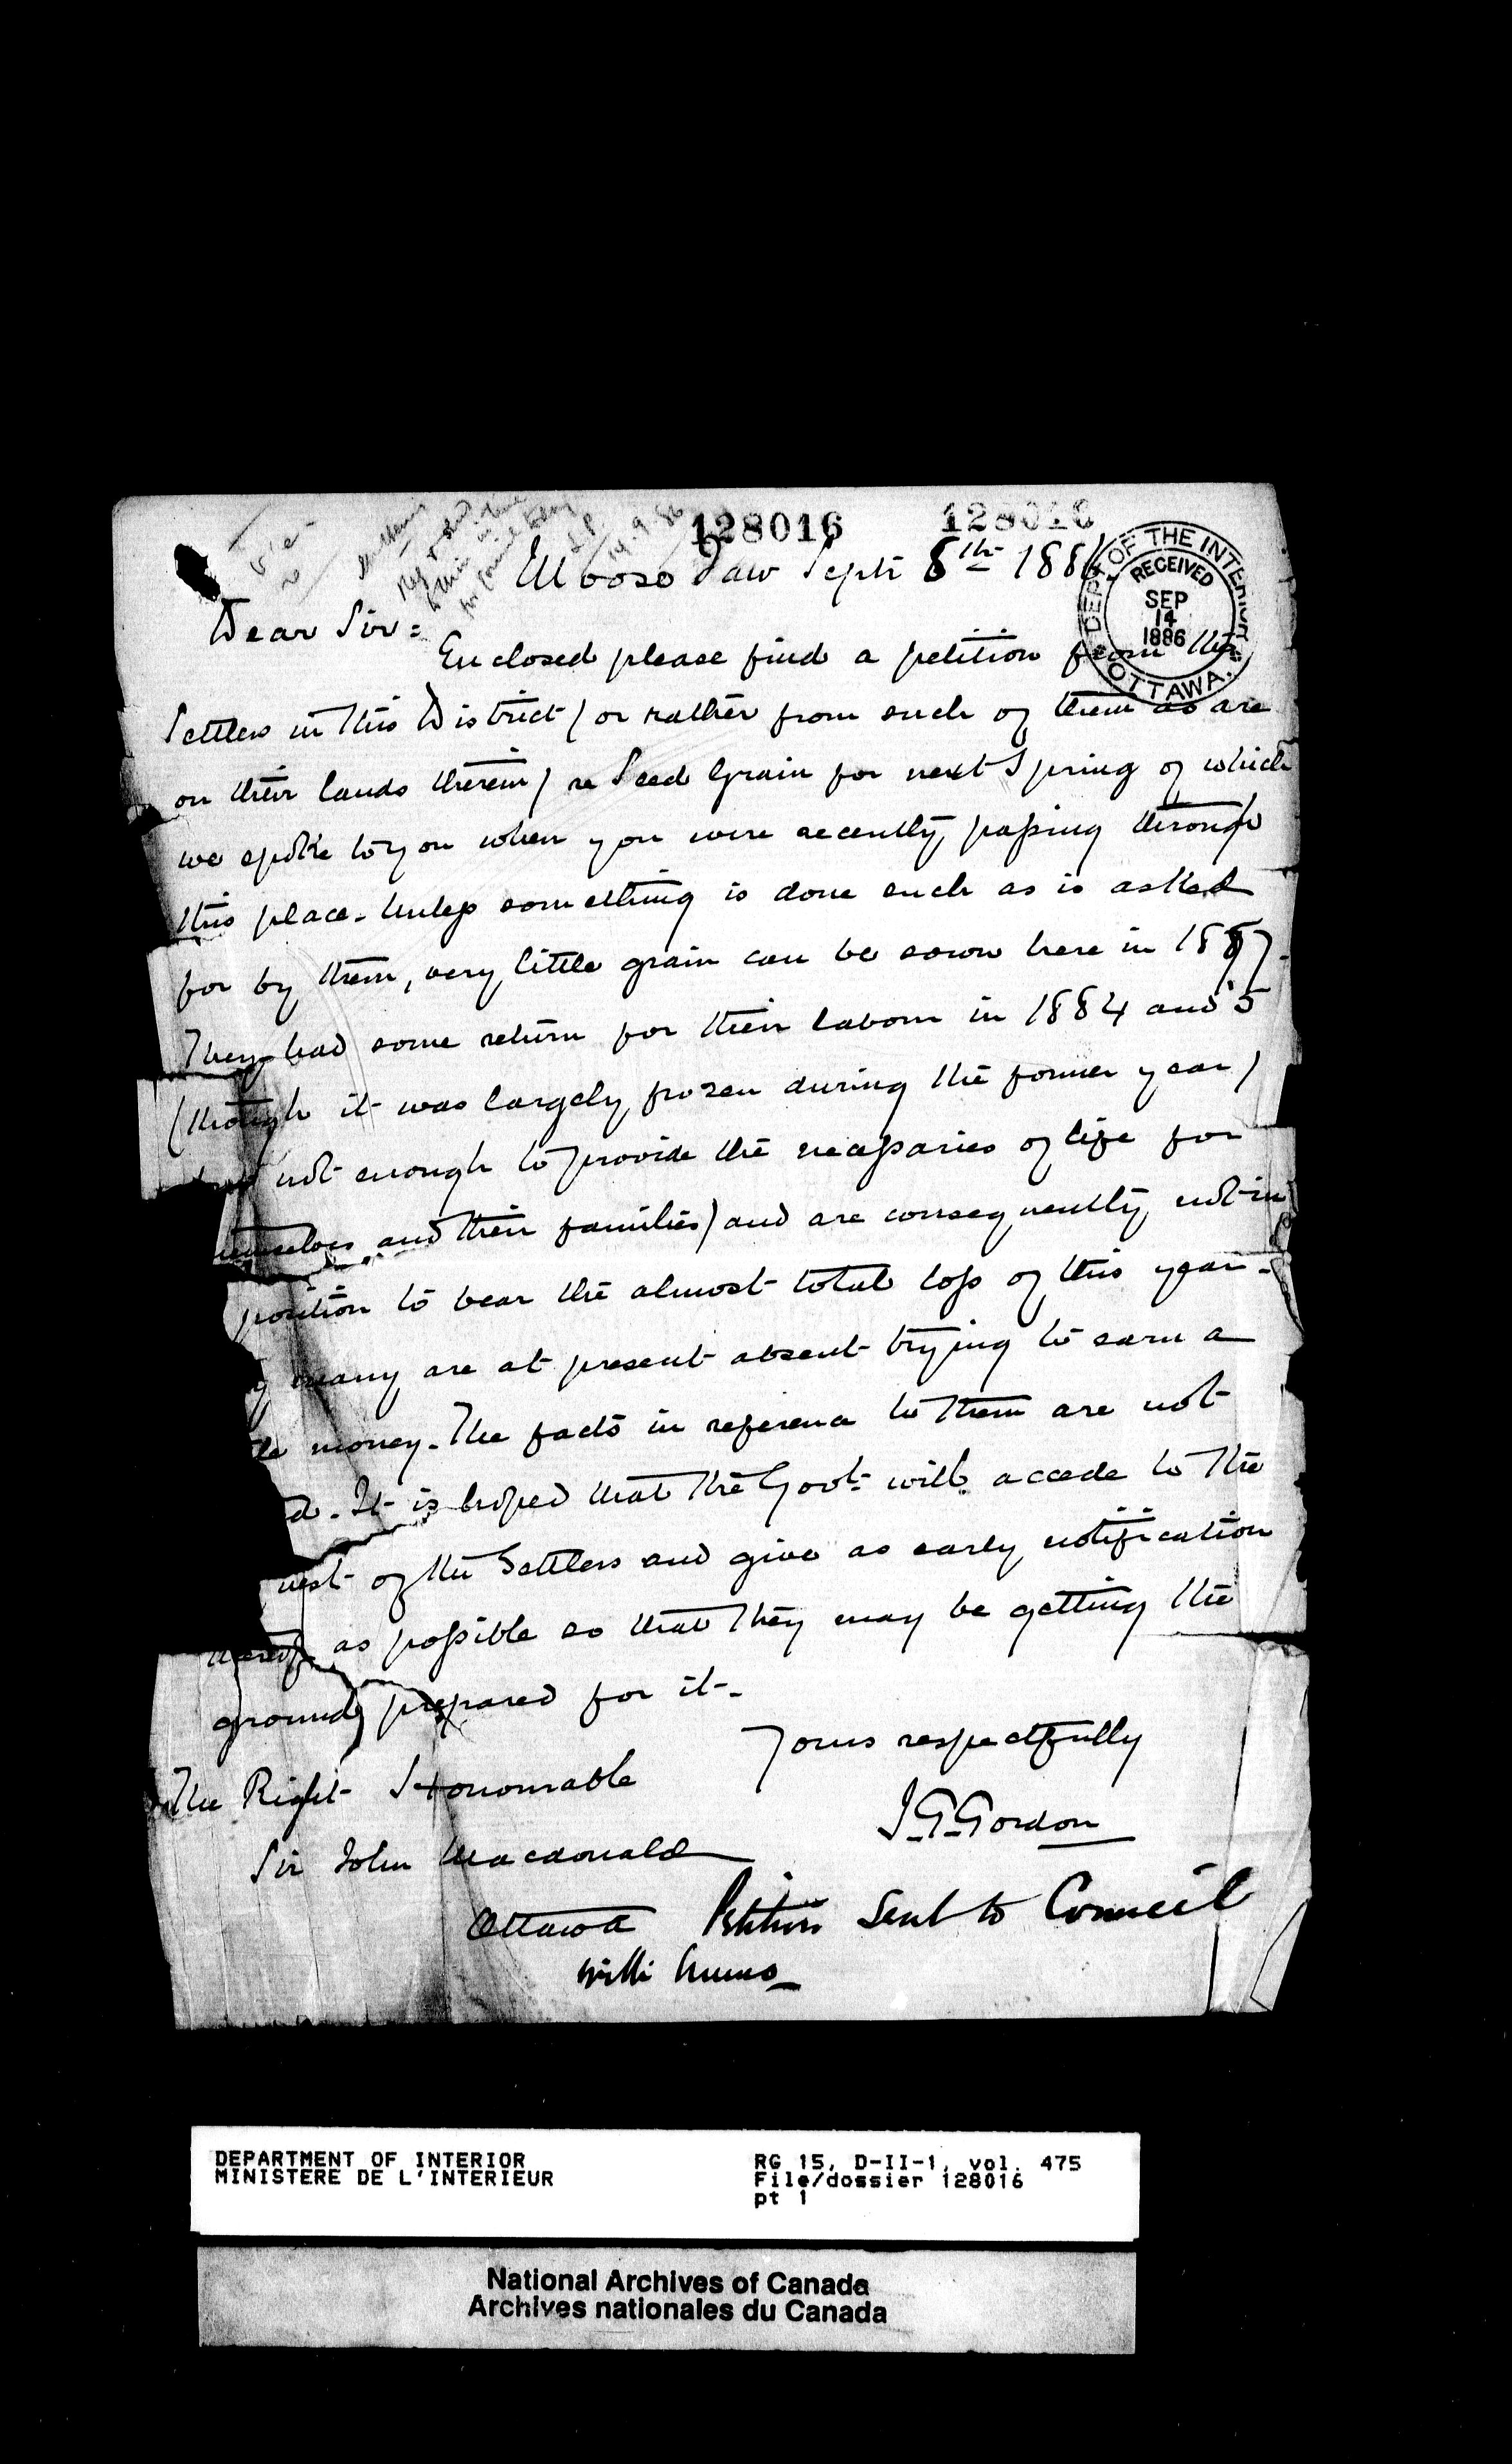 128016 128016
Moose Jaw Sept 8th 1886
DEPT. OF THE INTERIOR
RECEIVED
SEP
14
1886
OTTAWA.
14.9.86
Dear Sir =
Enclosed please find a petition from the
Settlers in this District (or rather from such of them as are
on their lands therein) re Seed Grain for next Spring of which
we spoke to you when you were recently passing through
this place. Unless something is done such as is asked
for by them, very little grain can be sown here in 1887.
They had some return for their labour in 1884 and '5
(though it was largely frozen during the former year)
not enough to provide the necessaries of life for
themselves and their families) and are consequently not in
position to bear the almost total loss of this year.
many are at present absent trying to earn a
money. The facts in reference to them are not
It is hoped that the Govt. will accede to the
uest of the Settlers and give as early notification
thereof as possible so that they may be getting the
ground prepared for it.
Yours respectfully
J. G. Gordon
The Right Honourable
Sir John Macdonald
Ottawa
Petition Sent to Council
with
DEPARTMENT OF INTERIOR
MINISTERE DE L'INTERIEUR
RG 15, D-II-1, vol. 475
File/dossier 128016
pt 1
National Archives of Canada
Archives nationales du Canada